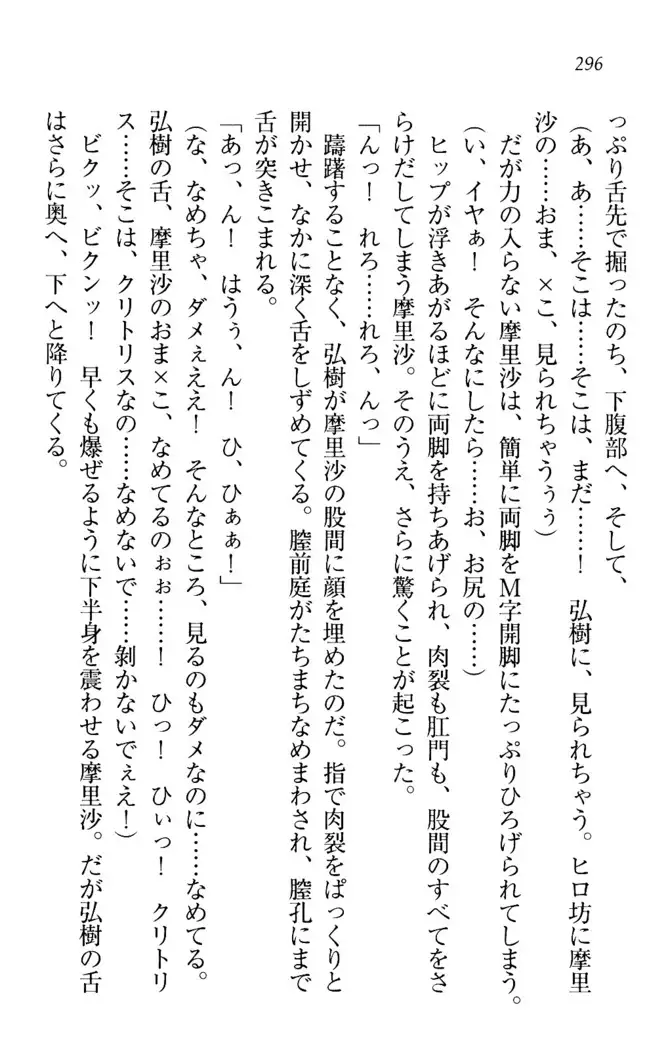 296
っぷり舌先で掘ったのち、下腹部へ、そして、
(あ、あ……そこは……そこは、まだ……! 弘樹に、見られちゃう。ヒロ坊に摩里
沙の……おま、×こ、見られちゃうぅぅ)
だが力の入らない摩里沙は、簡単に両脚をM字開脚にたっぷりひろげられてしまう。
(い、イヤぁ! そんなにしたら……お、お尻の……)
ヒップが浮きあがるほどに両脚を持ちあげられ、肉裂も肛門も、股間のすべてをさ
らけだしてしまう摩里沙。そのうえ、さらに驚くことが起こった。
「んっ! れろ……れろ、んっ」
躊躇することなく、弘樹が摩里沙の股間に顔を埋めたのだ。指で肉裂をぱっくりと
開かせ、なかに深く舌をしずめてくる。膣前庭がたちまちなめまわされ、膣孔にまで
舌が突きこまれる。
「あっ、ん! はうぅ、ん! ひ、ひぁぁ!」
(な、なめちゃ、ダメぇええ! そんなところ、見るのもダメなのに……なめてる。
弘樹の舌、摩里沙のおま×こ、なめてるのぉぉ……! ひっ! ひぃっ! クリトリ
ス……そこは、クリトリスなの……なめないで……剝かないでぇえ!)
ビクッ、ビクンッ! 早くも爆ぜるように下半身を震わせる摩里沙。だが弘樹の舌
はさらに奥へ、下へと降りてくる。